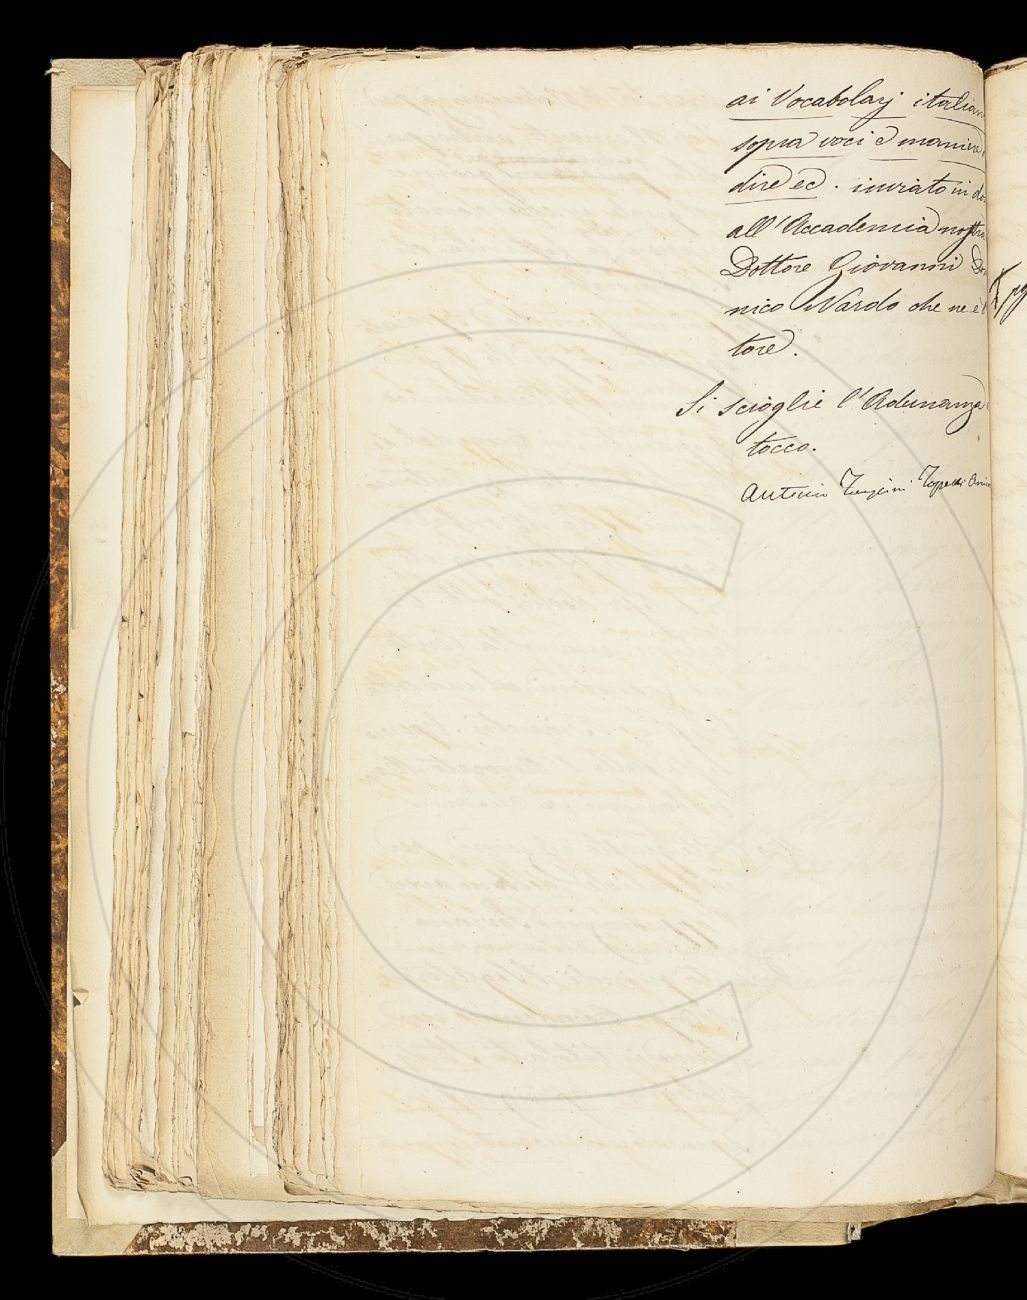 ai Vocabolarj italian
sopra voci e maniere
dire ec. inviato in do
all'Accademia nostra
Dottore Giovanni Do
nico Nardo che ne è
tore.
Si scioglie l'Adunanza
tocco.
Antonio